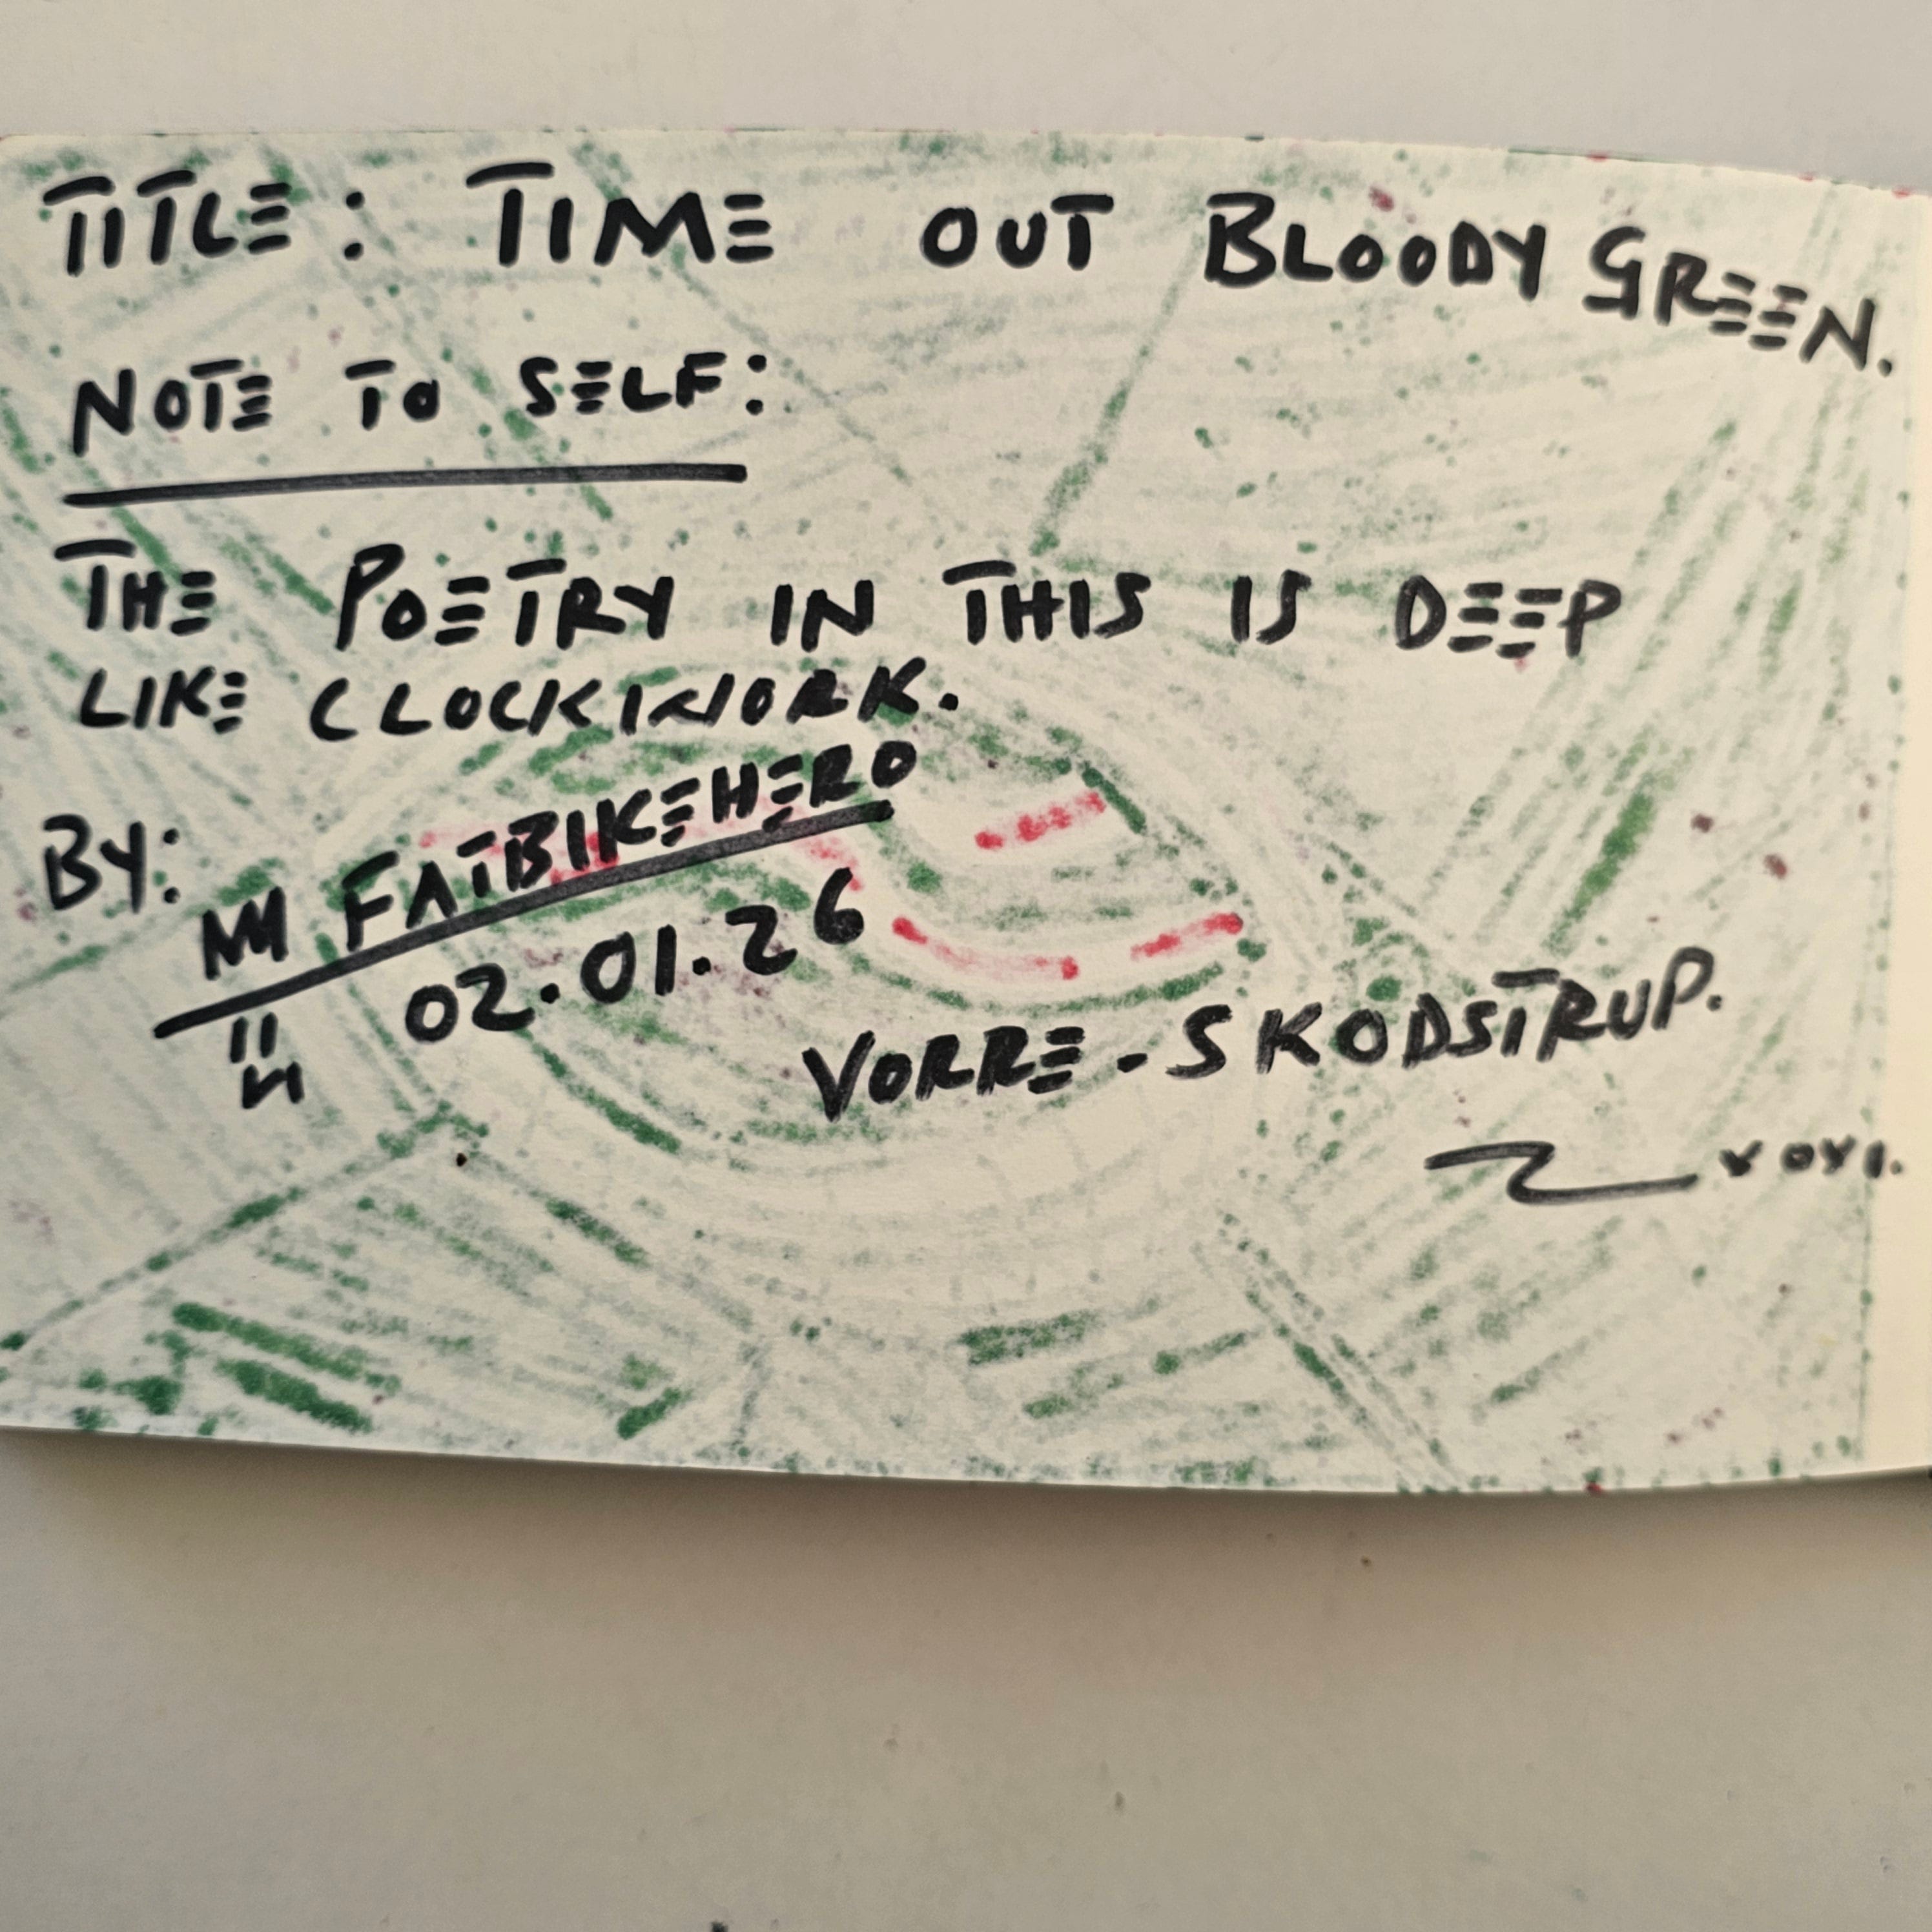 TITLE: TIME OUT BLOODY GREEN.
NOTE TO SELF:
THE POETRY IN THIS IS DEEP
LIKE CLOCKWORK.
BY: M FATBIKEHERO
02.01.26
VORRE-SKODSTRUP.